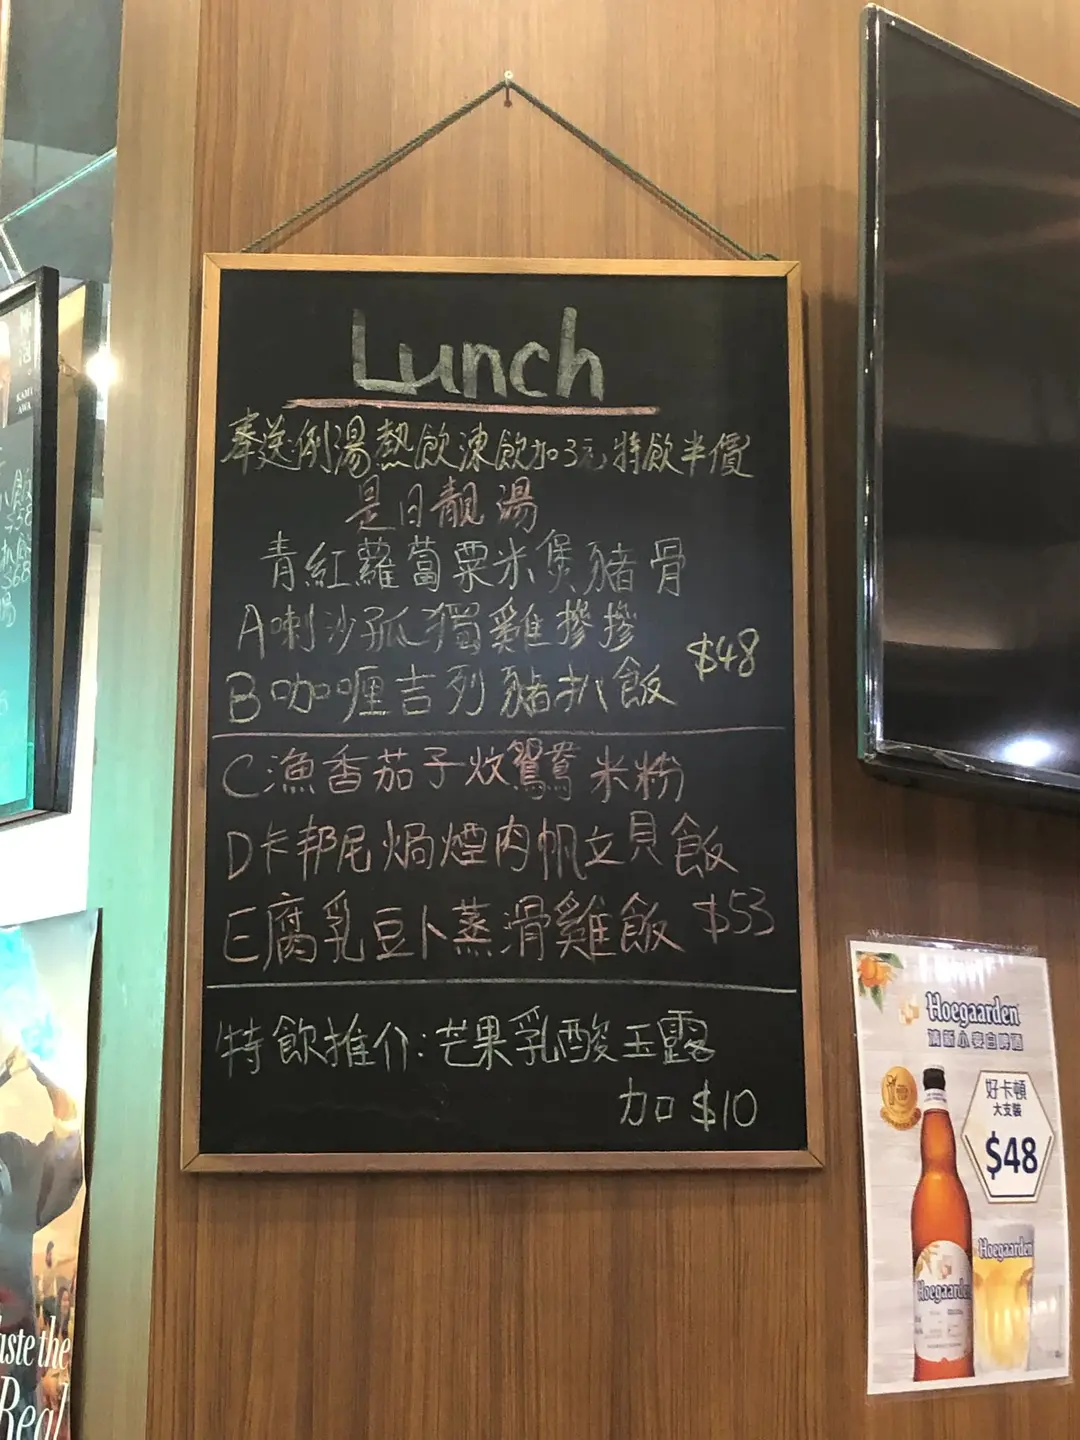 Lunch
奉送例湯熱飲凍飲加3元特飲半價
是日靚湯
青紅蘿蔔粟米煲豬骨
A喇沙孤獨雞摻摻
$48
B咖喱吉列豬扒飯
C漁香茄子炆鴛鴦米粉
D卡邦尼焗煙肉帆立貝飯
E腐乳豆卜蒸滑雞飯 $53
特飲推介:芒果乳酸玉露
加$10
Hoegaarden
清新小麥白啤酒
好卡頓
大支裝
$48
Hoegaarden
Hoegaarden
KAMI
AWA
aste the
Real